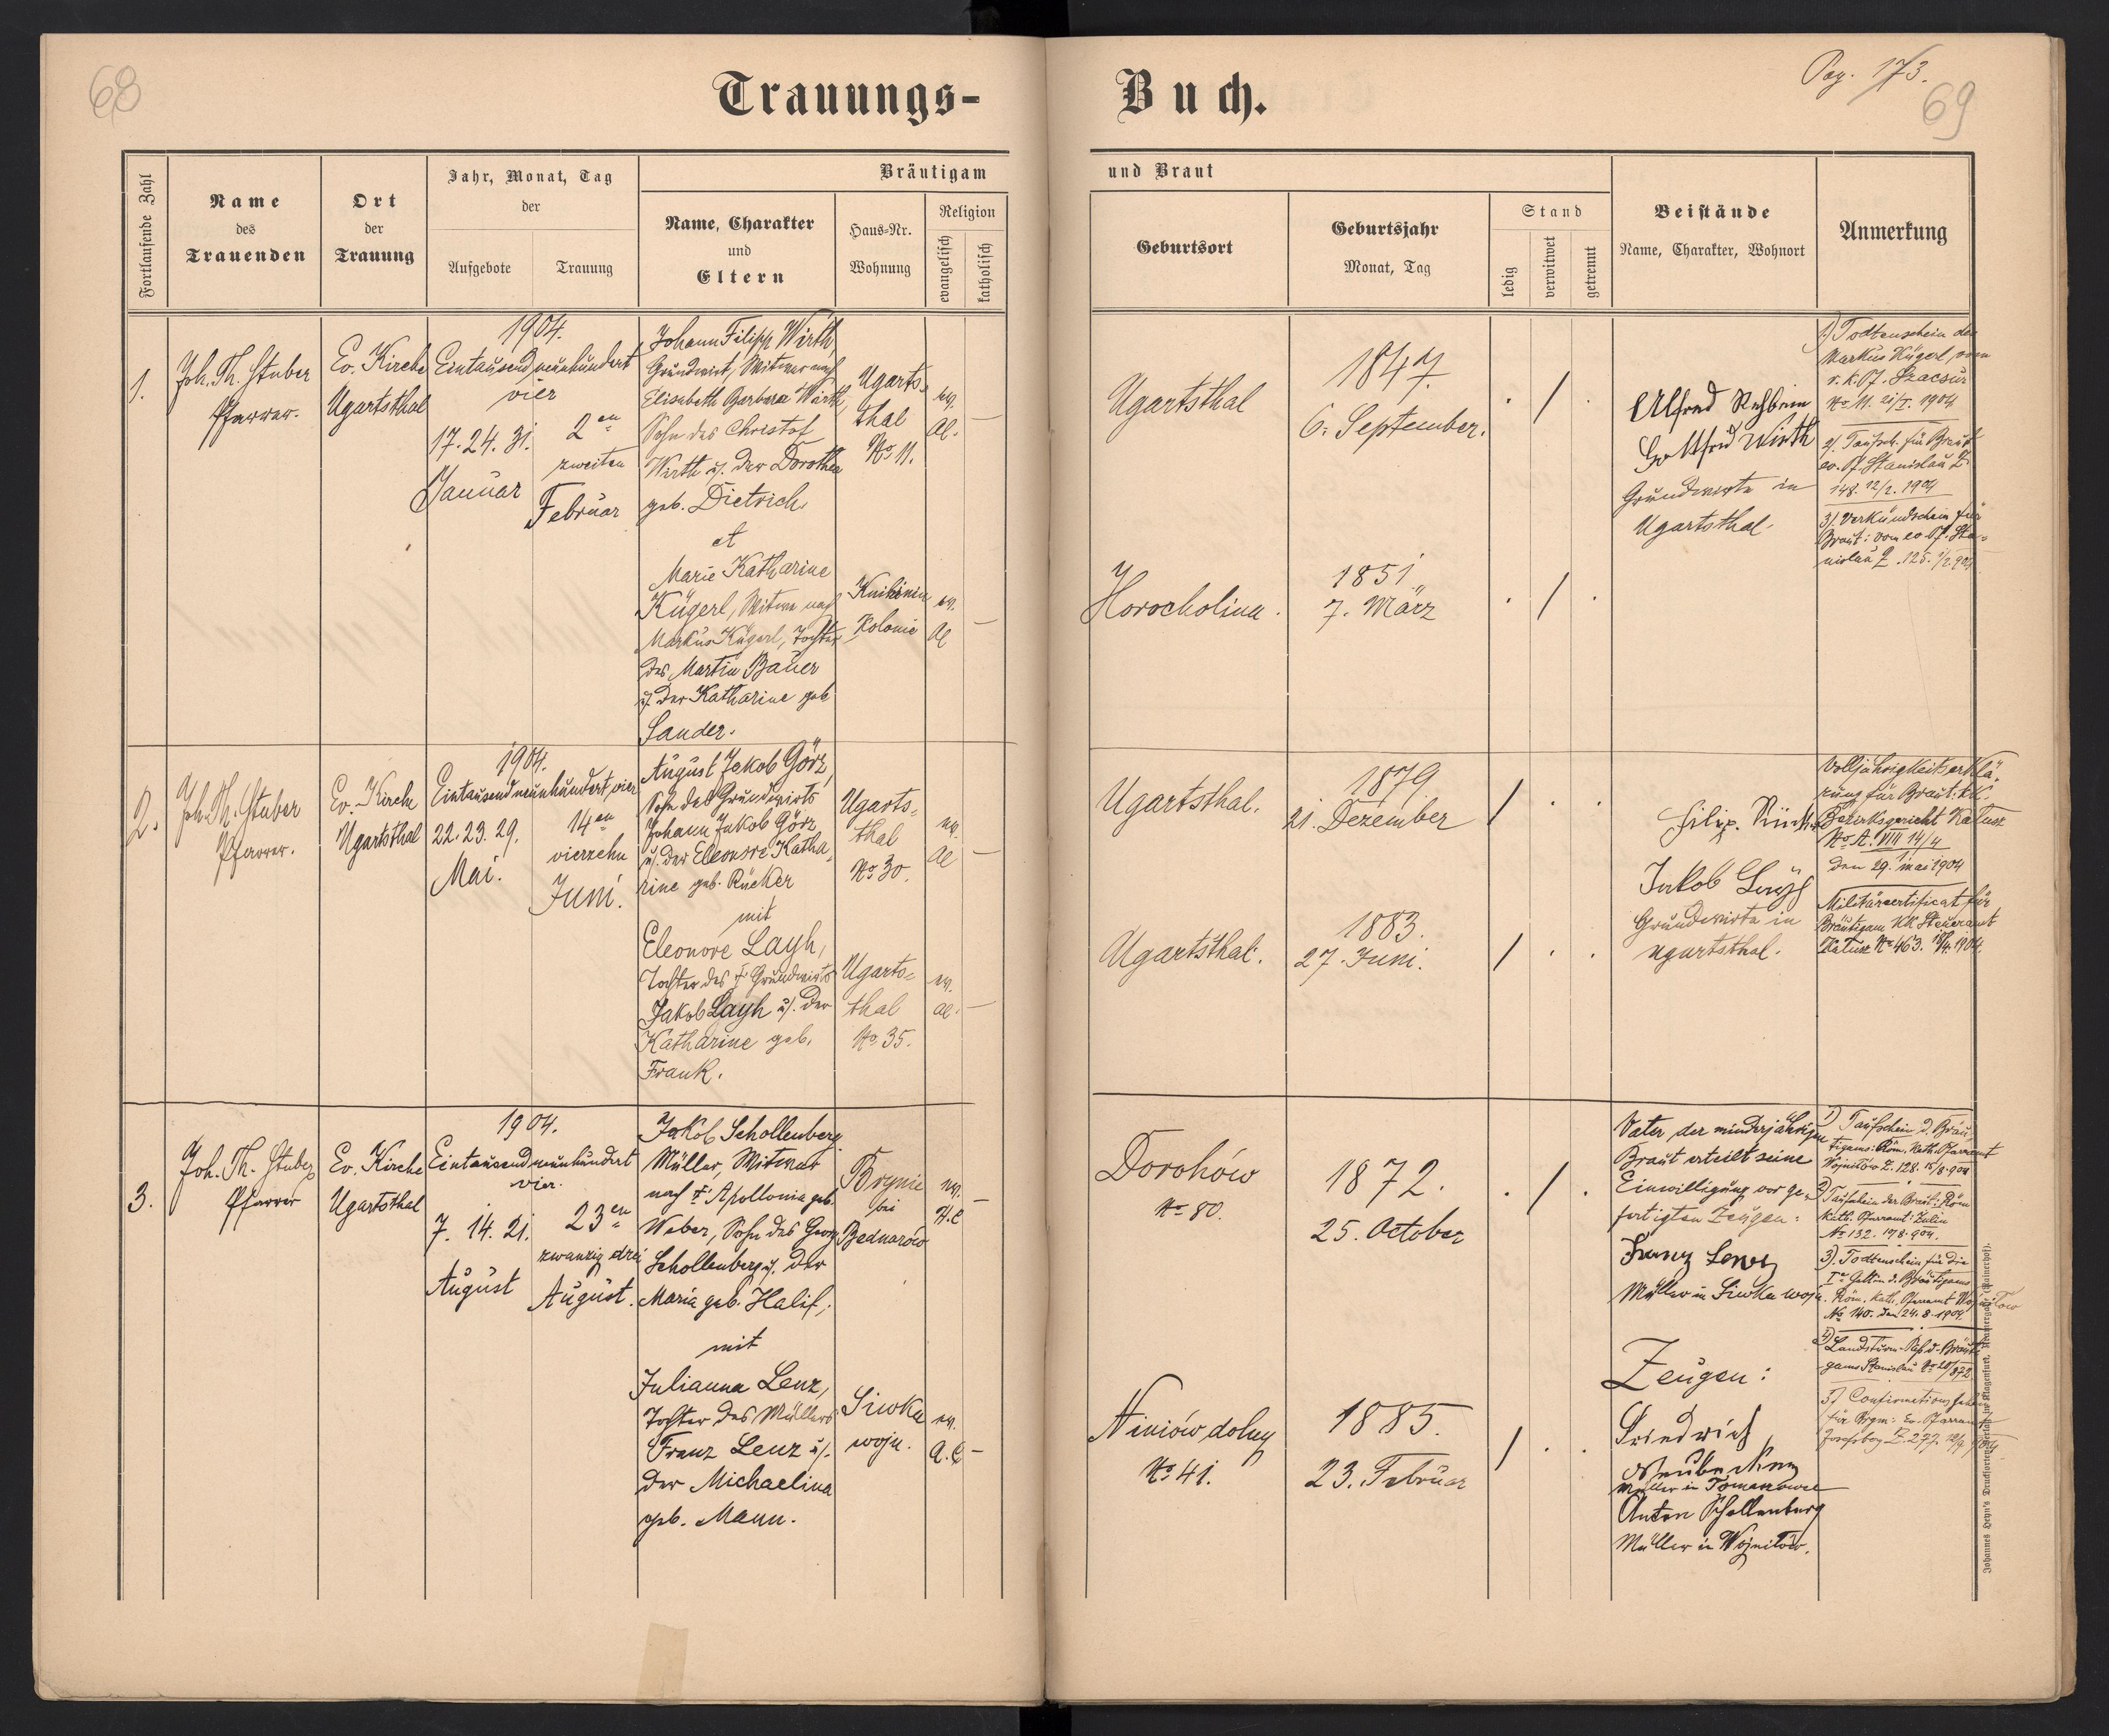 68
Trauungs-
Buch.
Pag. 173.
69
Fortlaufende Zahl
Name
des
Trauenden
Ort
der
Trauung
Jahr, Monat, Tag
der
Aufgebote
Trauung
Bräutigam
Name, Charakter
und
Eltern
Haus-Nr.
Wohnung
Religion
evangelisch
katholisch
und Braut
Geburtsort
Geburtsjahr
Monat, Tag
Stand
ledig
verwitwet
getrennt
Beistände
Name, Charakter, Wohnort
Anmerkung
1.
Joh. Th. Stuber
Pfarrer.
Ev. Kirche
Ugartsthal
1904.
Eintausendneunhundert
vier
17. 24. 31.
Januar
2en
zweiten
Februar
Johann Filipp Wirth,
Grundwirt, Witwer nach
Elisabeth Barbara Wirth,
Sohn des Christof
Wirth u. der Dorothea
geb. Dietrich
et
Marie Katharine
Kügerl, Witwe nach
Markus Kügerl, Tochter
des Martin Bauer
u. der Katharine geb
Sander.
Ugarts-
thal
No 11.
Knihinin
Kolonie
ev.
AC.
ev.
AC
Ugartsthal
1847.
6. September.
Horocholina.
1851.
7. März
Alfred Rehbein
Gottfried Wirth
Grundwirte in
Ugartsthal.
1) Todtenschein des
Markus Kügerl vom
No 11. 21/I. 1904
2). Taufsch. für Braut
ev. Pf. Stanislau Z.
148. 12/2. 1904
3). Verkündschein für
Braut: vom ev. Pf. Sta-
nislau Z. 125. 1/2. 904
2.
Joh. Th. Stuber
Pfarrer.
Ev. Kirche
Ugartsthal
1904.
Eintausendneunhundert vier
22. 23. 29.
Mai.
14en
vierzehn
Juni.
August Jakob Görz,
Sohn des Grundwirts
Johann Jakob Görz
u. der Eleonore Katha-
rine geb. Rücker
mit
Eleonore Layh,
Tochter des † Grundwirts
Jakob Layh u. der
Katharine geb.
Frank.
Ugarts-
thal
No 30.
Ugarts-
thal
No 35.
ev.
AC
ev.
AC.
Ugartsthal.
1879.
21. Dezember
Ugartsthal.
1883.
27. Juni.
Filip.
Jakob Layh
Grundwirte in
Ugartsthal.
Volljährigkeitserklä-
rung für Braut: k.k.
Bezirksgericht Kałusz
No A. VIII 14/4
den 29. Mai 1904
Militärcertificat für
Bräutigam KK Steueramt
Kałusz No 463. 1904
3.
Joh. Th. Stuber
Pfarrer
Ev. Kirche
Ugartsthal
1904.
Eintausendneunhundert
vier.
7. 14. 21.
August
23en
zwanzig drei
August.
Jakob Schollenberg
Müller, Witwer
nach † Apollonia geb.
Weber, Sohn des Georg
Schollenberg u. der
Maria geb. Halif,
mit
Julianna Lenz,
Tochter des Müllers
Franz Lenz u.
der Michaelina
geb. Mann.
Brynie
bei
Bednarów
Siwka
wojn.
ev.
A.C
ev.
A.C
Dorohów
No 80.
1872.
25. October
Niniów dolny
No 41.
1885.
23. Februar
Vater der minderjährigen
Braut erteilt seine
Einwilligung vor ge-
fertigten Zeugen:
Franz Lenz
Müller in Siwka wojn.
Zeugen:
Friedrich
Müller in Tomaszowce
Anton Schollenberg
Müller in Wojniłów.
1) Taufschein d. Bräu-
tigams: Röm. Kath. Pfarramt
Wojniłów Z. 128. 15/8. 904
2) Taufschein der Braut: Röm
kath. Pfarramt:
No 132. 17/8. 904.
3). Todtenschein für die
Ie Gattin d. Bräutigams
Röm. kath. Pfarramt Wojniłów
No 140. den 24. 8. 1904
4) Landsturm-Paß d. Bräuti-
gams Stanislau No 20/872
5) Confirmations
für Brgm: Ev. Pfarramt
Josefsberg Z. 277.
Johannes Heyn's Drucksorten-Verlag in Klagenfurt, Kramergasse (Rainerhof).